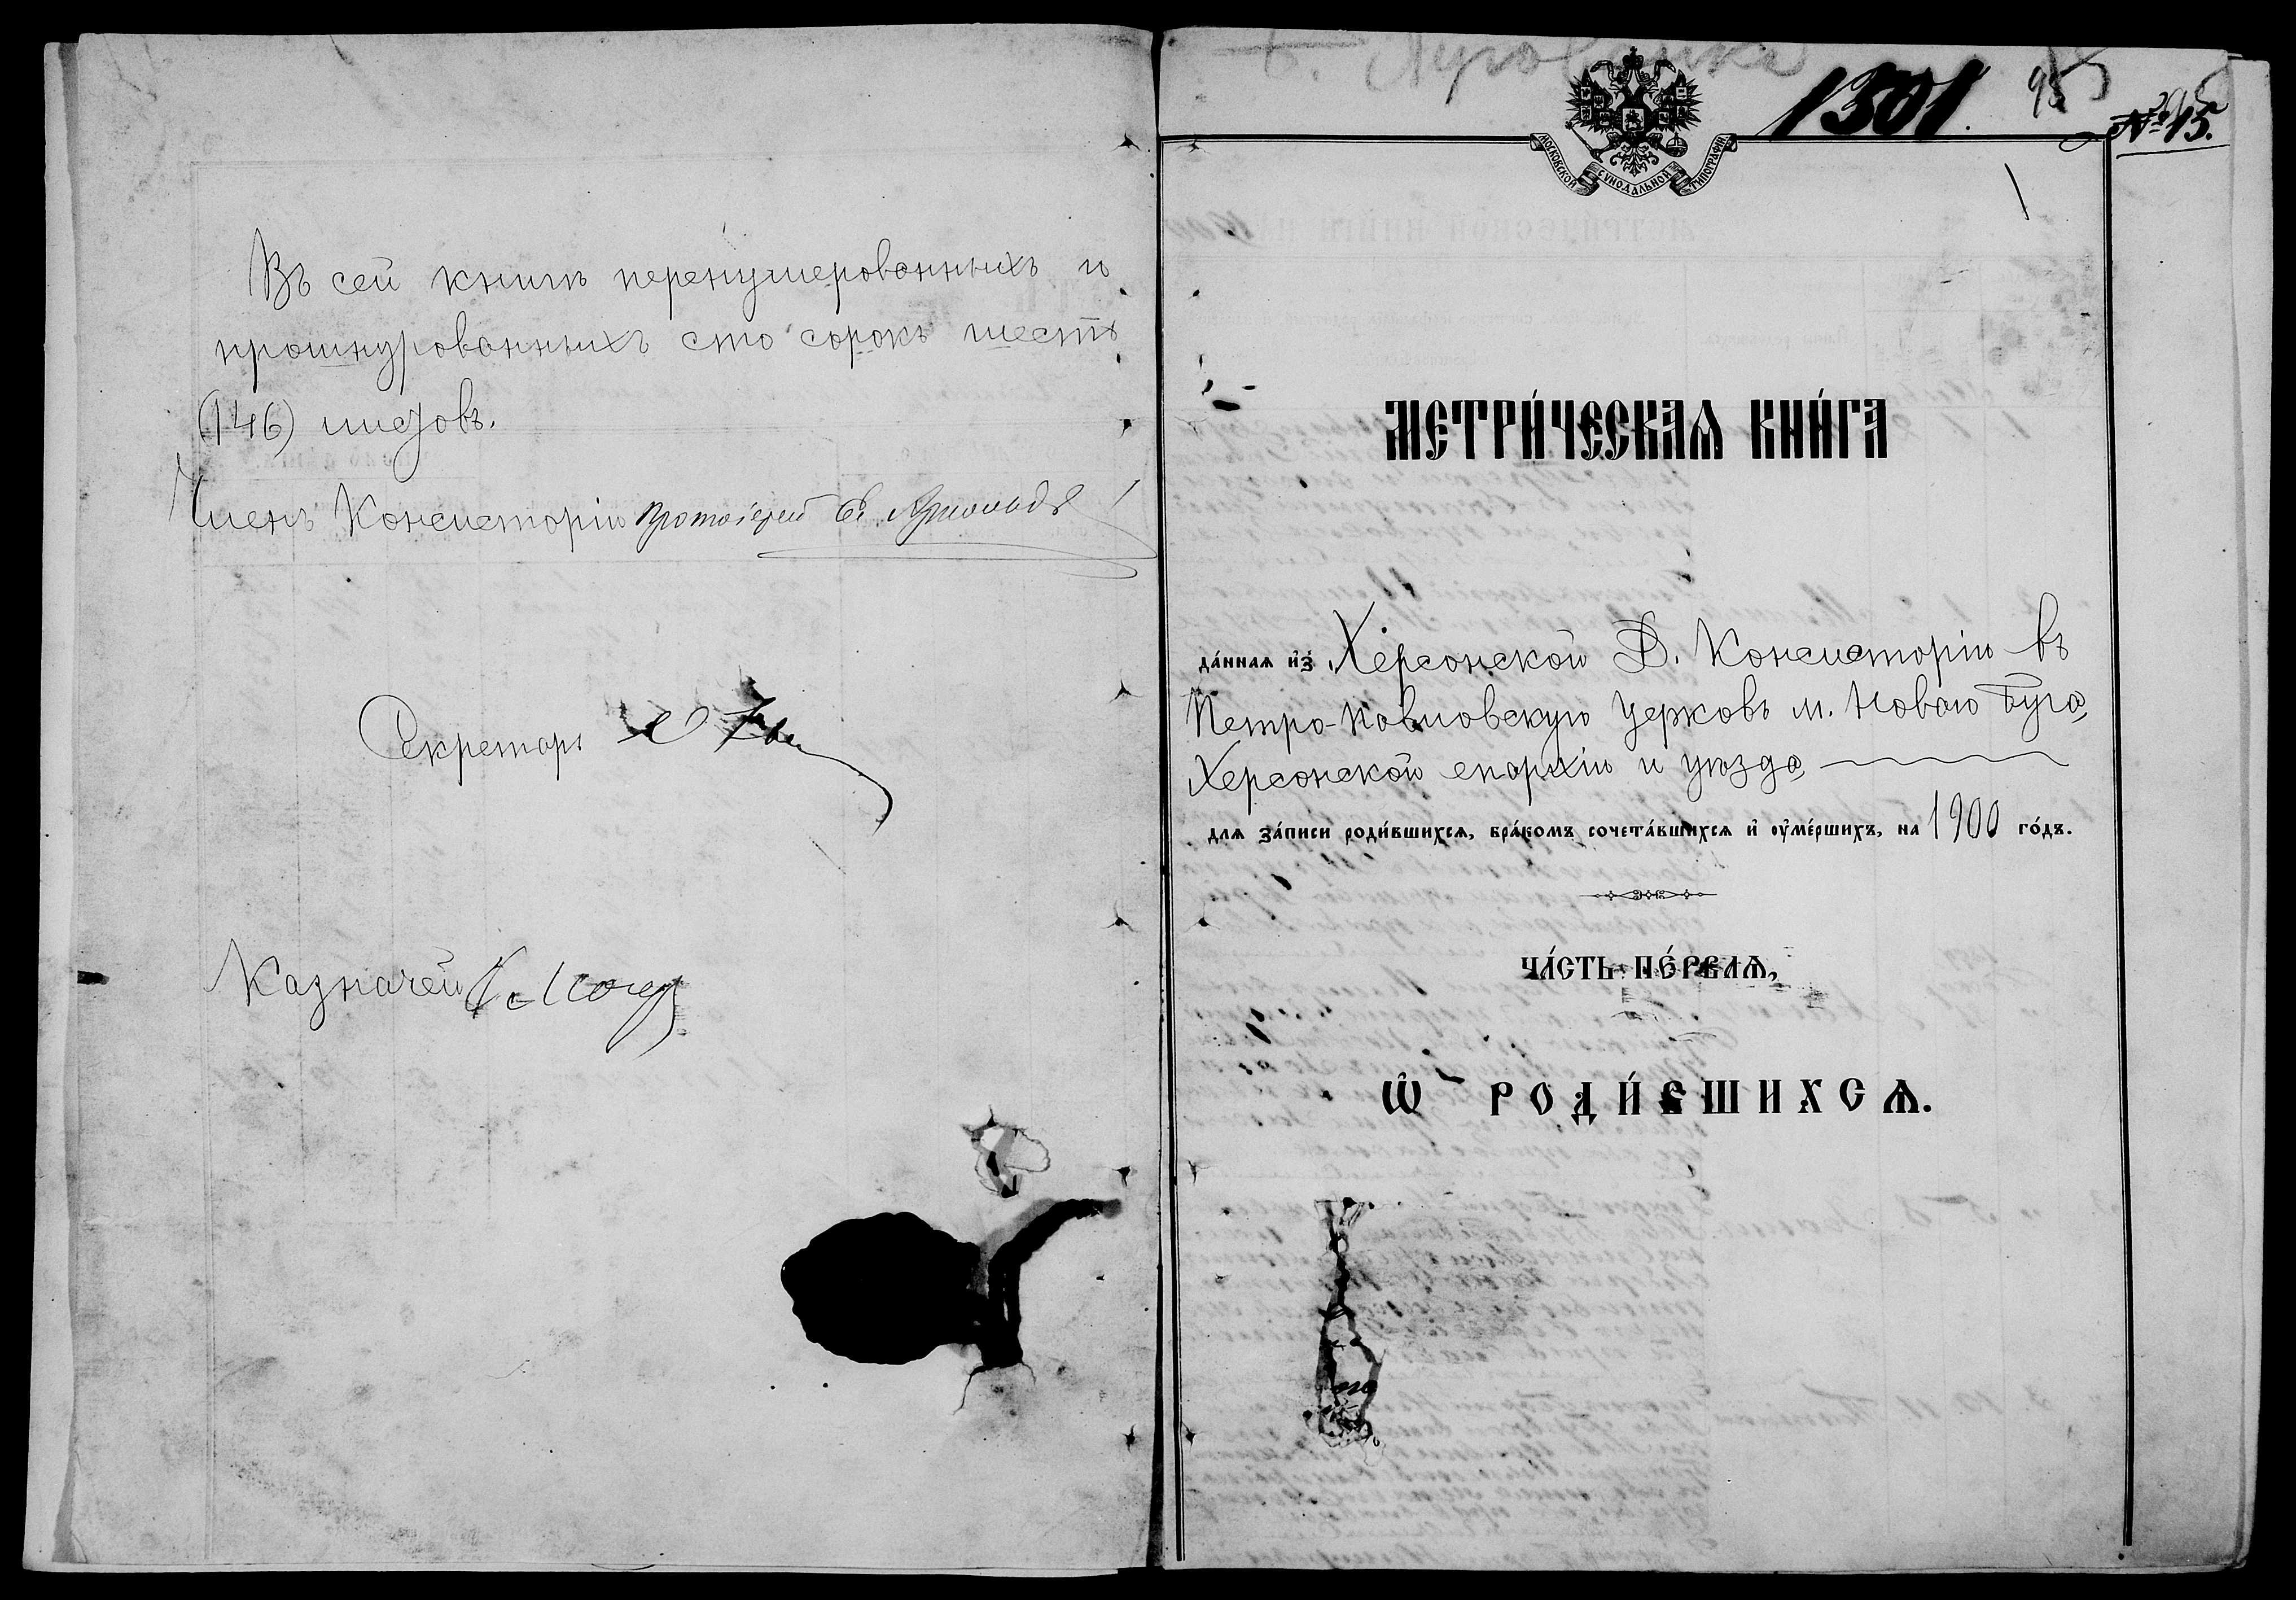 Въ сей книгѣ перенумерованныхъ и
прошнурованныхъ сто сорокъ шесть
(146) листовъ.
Членъ Консисторіи Протоіерей
Секретарь
Казначей
1301.
№ 15.
МОСКОВСКОЙ СѴНОДАЛЬНОЙ ТИПОГРАФІИ
1
МЕТРИ́ЧЕСКАѦ КНИ́ГА
да́ннаѧ и҆з̾ Херсонской Д. Консисторіи въ
Петро-Павловскую церковь м. Новаго Буга,
Херсонской епархіи и уѣзда
для за́писи роди́вшихсѧ, бра́комъ сочета́вшихсѧ и҆ ᲂу҆ме́ршихъ, на 1900 го́дъ.
ЧА́СТЬ ПЕ́РВАѦ,
Ѡ҆ РОДИ́ВШИХСѦ.